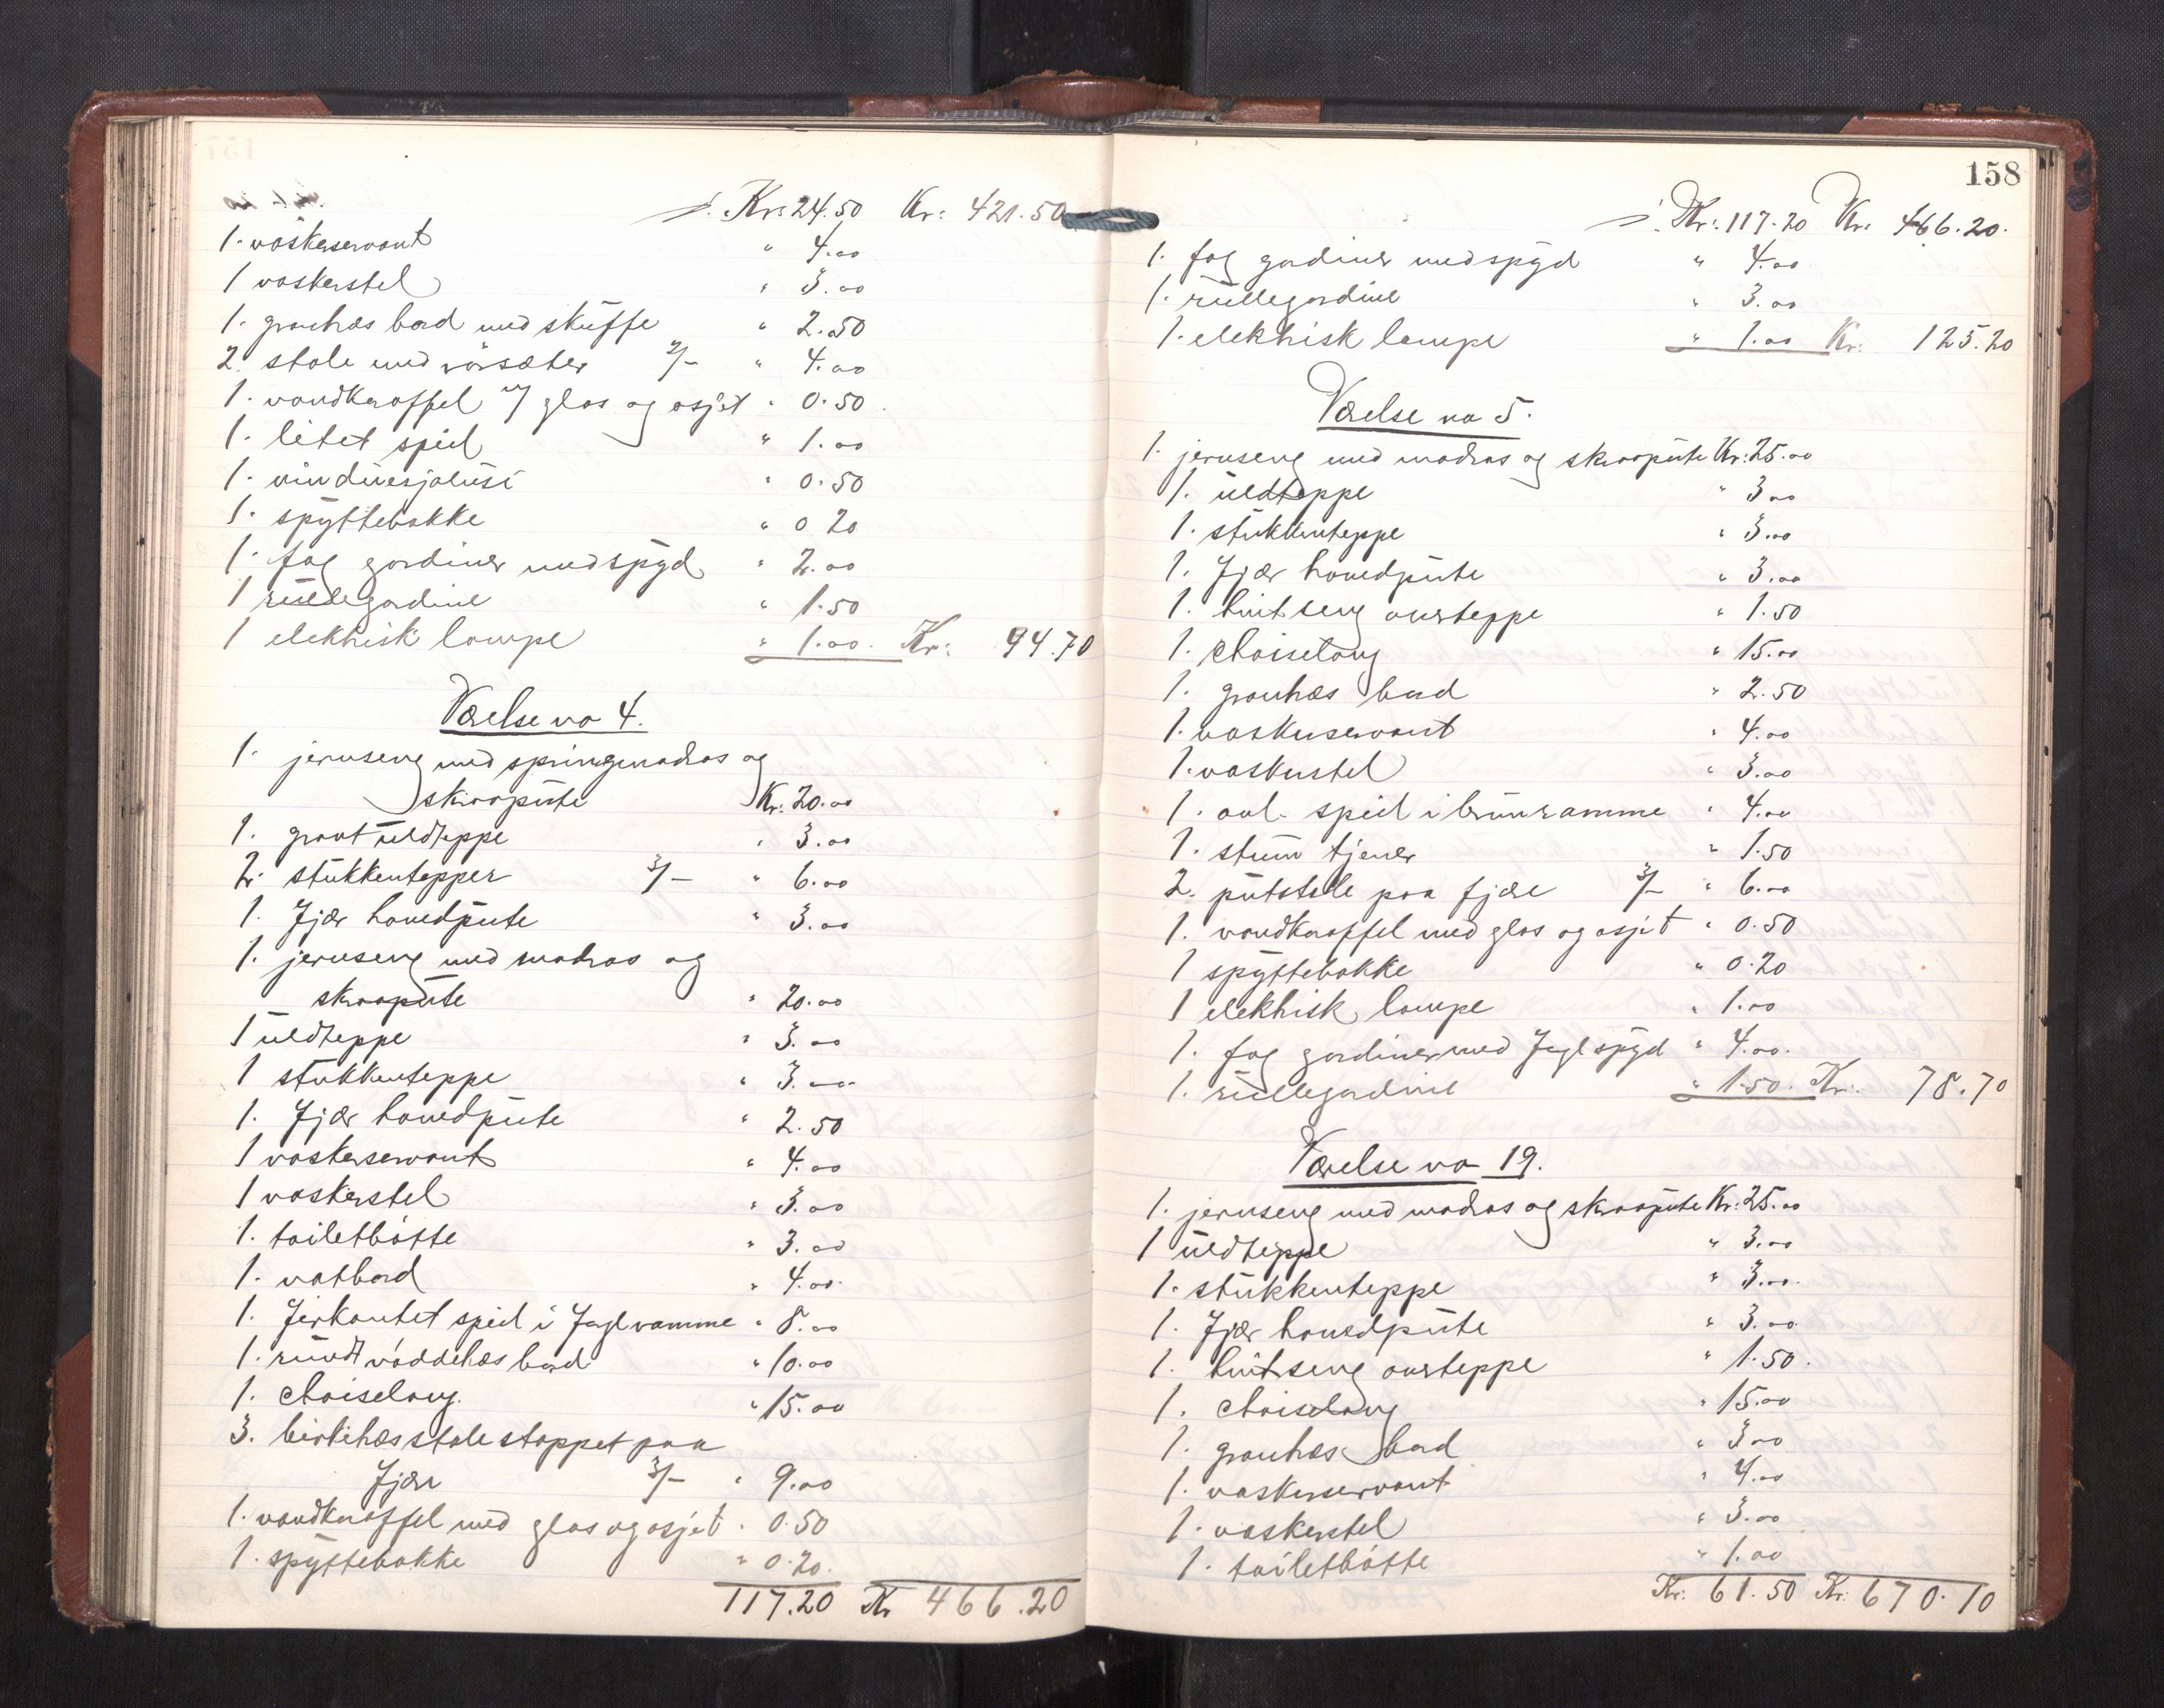 Kr: 24.50 Kr: 421.50
1. vaskeservant " 4.00
1 vaskestel " 3.00
1. grantræs bord med skuffe " 2.50
2. stole med rørsæter 2/- " 4.00
1. vandkaraffel m/ glas og asjet " 0.50
1. litet speil " 1.00
1. vinduesjalusi " 0.50
1. spyttebakke " 0 20
1. fag gardiner med spyd " 2.00
1 rullegardine " 1.50
1 elektrisk lampe " 1.00 Kr: 44.70
Værelse no 4.
1. jernseng med springmadras og
skraapute Kr: 20.00
1. graat uldteppe " 3.00
2. stukkentepper 3/- " 6.00
1. Fjær hovedpute " 3.00
1. jernseng med madras og
skraapute " 20.00
1 uldteppe " 3.00
1 stukkenteppe " 3.00
1. Fjær hovedpute " 2.50
1 vaskeservant " 4.00
1 vaskestel " 3.00
1. toiletbøtte " 3.00
1. natbord " 4.00
1. Firkantet speil i Fuglramme " 8.00
1. rundt nøddetræs bord " 10.00
1. Chaiselong. " 15.00
3. birketræs stole stoppet paa
Fjær 3/- " 9.00
1. vandkaraffel med glas og asjet " 0.50
1. spyttebakke " 0.20.
117.20 Kr 466.20
158
Kr: 117.20 Kr. 466.20.
1. fag gardiner med spyd " 4.00
1. rullegardine " 3.00
1. elektrisk lampe " 1.00 Kr: 125.20
Værelse no 5.
1. jernseng med madras og skraapute Kr: 25.00
1. uldteppe " 3 00
1. stukkenteppe " 3.00
1. Fjær hovedpute " 3.00
1. hvit seng overteppe " 1.50
1. Chaiselong " 15.00
1. grantræs bord " 2.50
1. vaskeservant " 4.00
1. vaskestel " 3.00
1. ovl. speil i brun ramme " 4.00
1. stum tjener " 1.50
2. putstole paa fjær 3/- " 6.00
1. vandkaraffel med glas og asjet " 0.50
1 spyttebakke " 0.20
1 elektrisk lampe " 1.00
1. fag gardiner med Fugl spyd " 4.00.
1. rullegardine " 1.50. Kr: 78.70
Værelse no 19.
1. jernseng med madras og skraapute Kr: 25.00
1 uldteppe " 3.00
1. stukkenteppe " 3.00.
1. Fjær hovedpute " 3.00
1. hvit seng overteppe " 1.50.
1. Chaiselong " 15.00
1. grantræs bord " 3 00
1. vaskeservant " 4.00
1. vaskestel " 3.00
1. toiletbøtte " 1.00
Kr: 61.50 Kr: 670.10